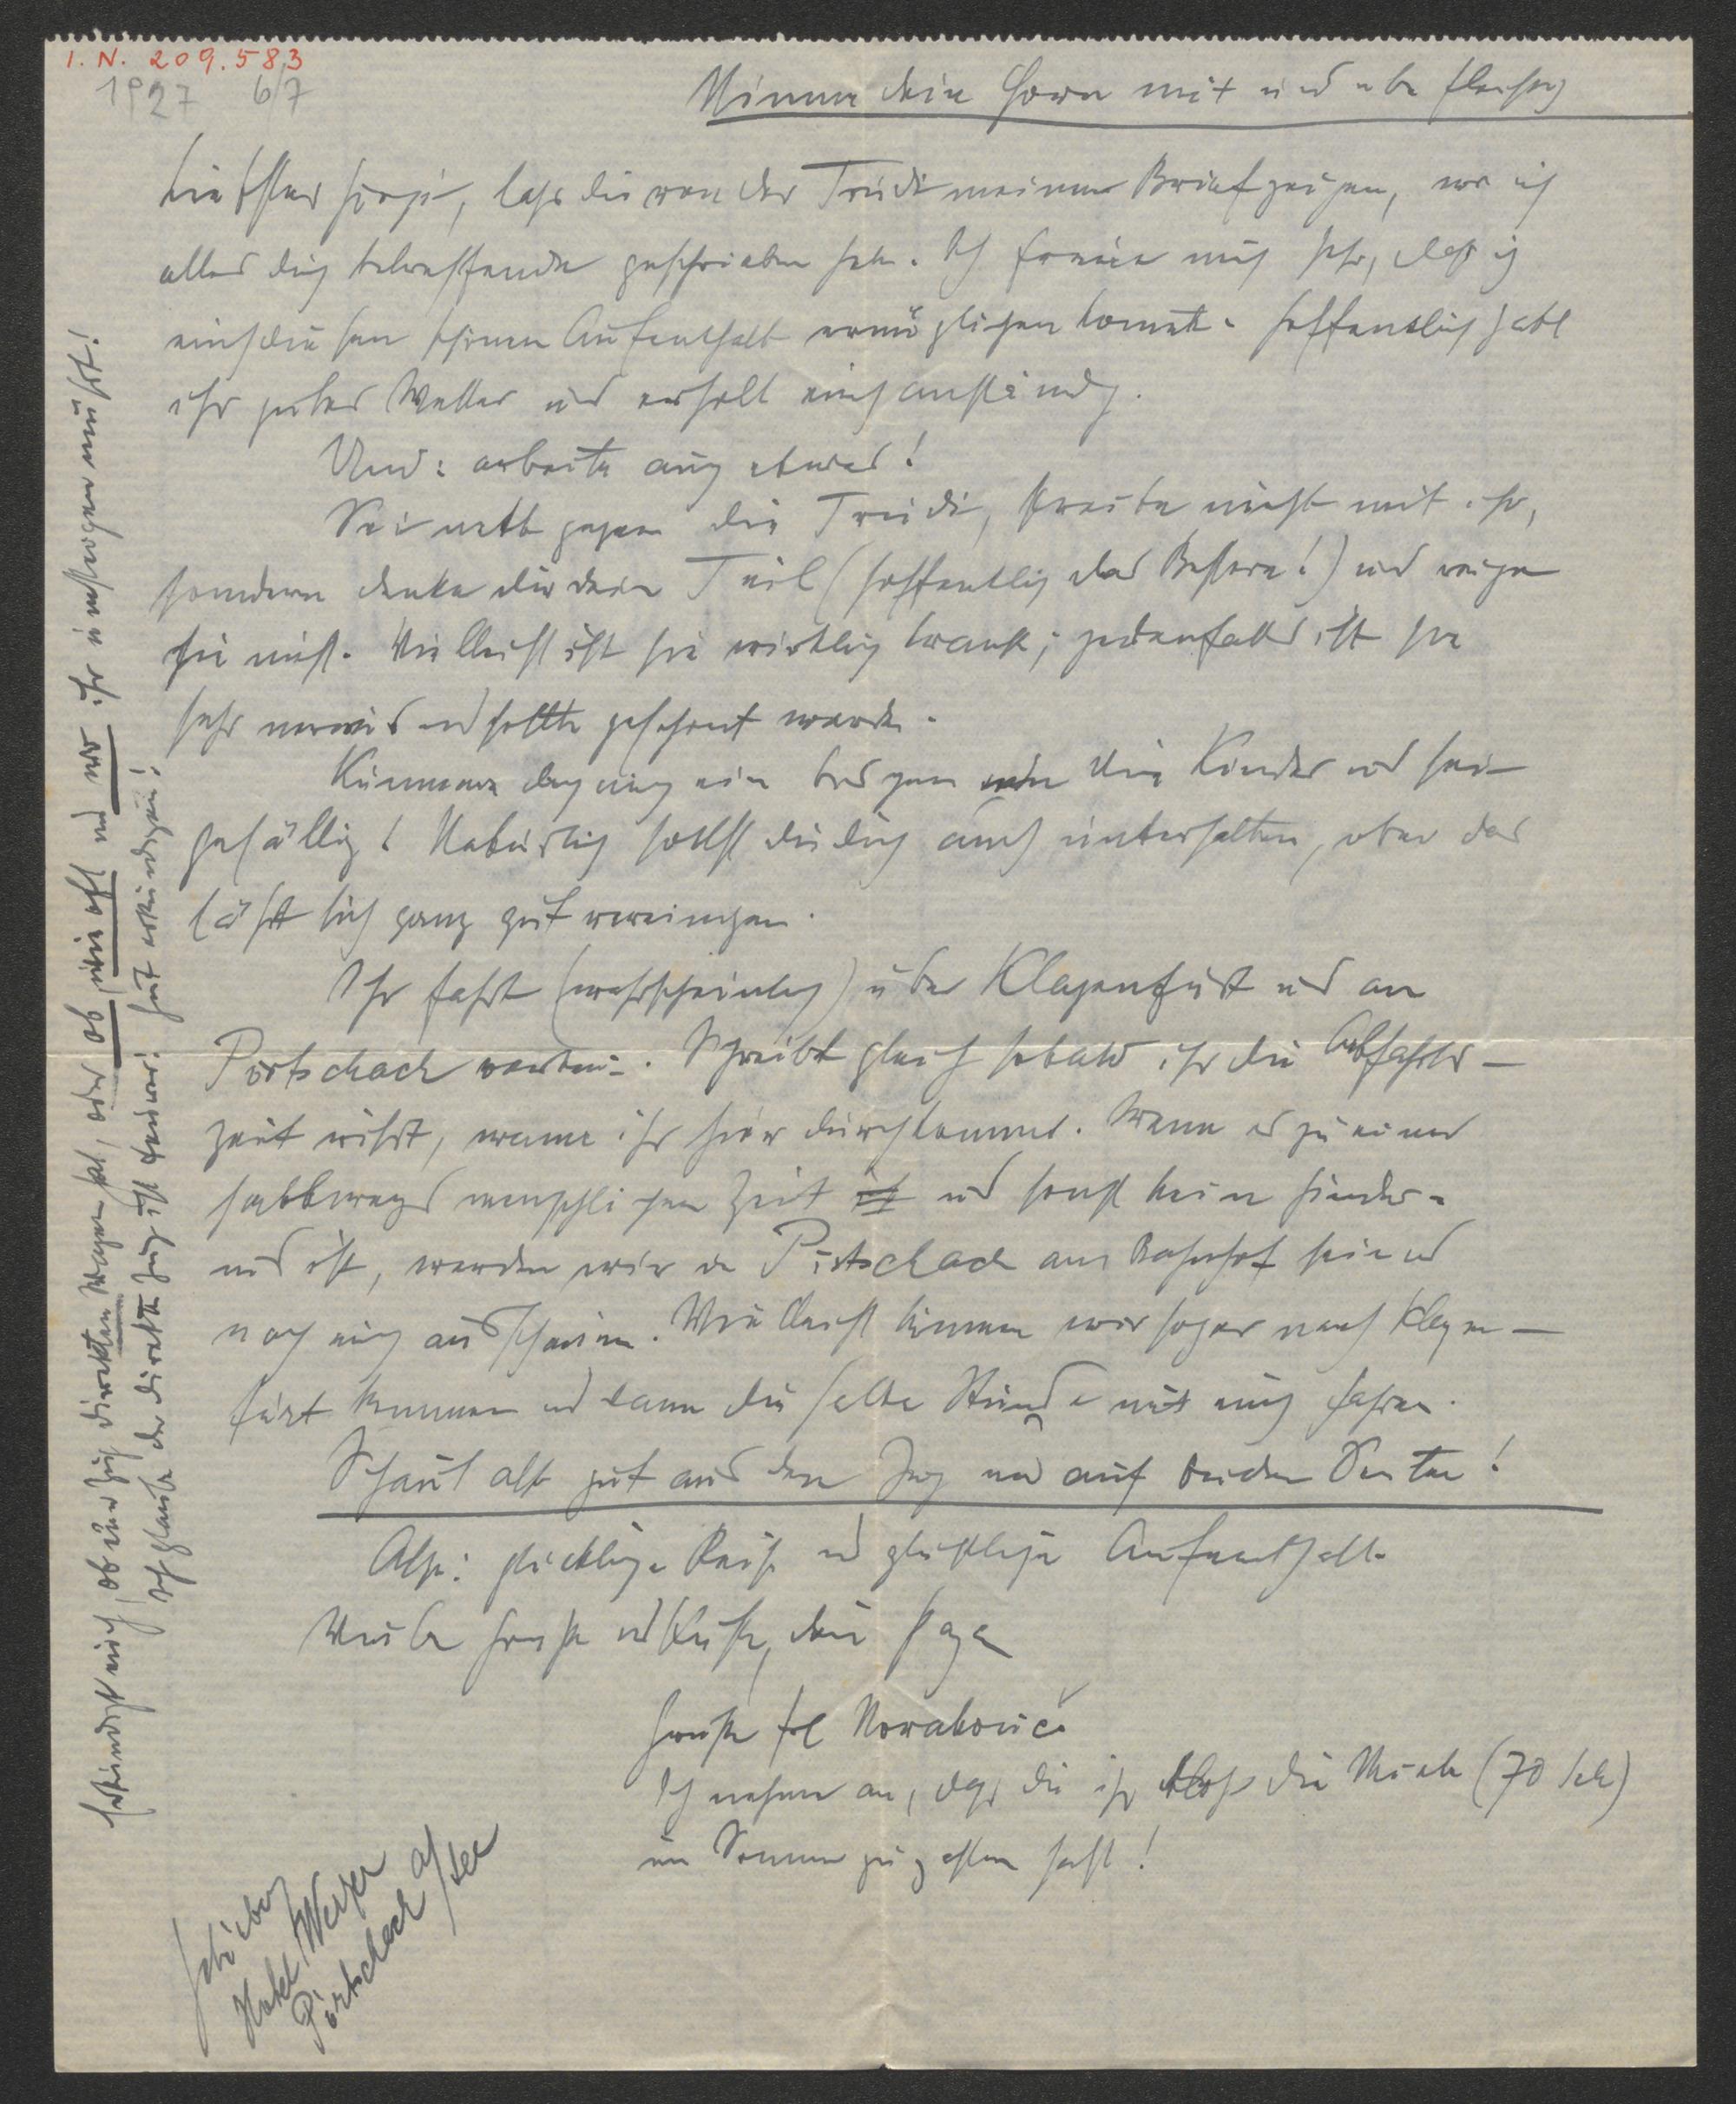 I. N. 209.583
1927 6/7
Nimm dein Horn mit und übe fleißig
Liebster Görgi, lass dir von der Trudi meinen Brief zeigen, wo ich
alles dich betreffende geschrieben habe. Ich freue mich sehr, dass ich
euch diesen schönen Aufenthalt ermöglichen konnte. Hoffentlich habt
ihr gutes Wetter und erholt euch anständig.
Und: arbeite auch etwas!
Sei nett gegen die Trudi, streite nicht mit ihr,
sondern denke dir dein Teil (hoffentlich das Bessere!) und reize
sie nicht. Vielleicht ist sie wirklich krank; jedenfalls ist sie
sehr nervös und sollte geschont werden.
Kümmere dich auch ein bisschen um die Kinder und sei
gefällig! Natürlich sollst du dich auch unterhalten, aber das
lässt sich ganz gut vereinigen.
Ihr fahrt (wahrscheinlich) über Klagenfurt und an
Pörtschach vorbei. Schreibt gleich sobald ihr die Abfahrts-
zeit wisst, wann ihr hier durchkommt. Wenn es zu einer
halbwegs menschlichen Zeit ist und sonst kein Hinder-
nis ist, werden wir in Pörtschach am Bahnhof sein und
nach euch ausschauen. Vielleicht können wir sogar nach Klagen-
furt kommen und dann die halbe Stunde mit euch fahren.
Schaut also gut aus dem Zug und auf beiden Seiten!
Also: glückliche Reise und glücklichen Aufenthalt.
Viele Grüße und Küsse, dein Papa
Grüße Frl Novakovic
Ich nehme an, dass du ihr bloß die Miete (70 Sch)
im Sommer zu zahlen hast!
Schönberg
Hotel Werzer
Pörtschach a/See
Erkundigt euch, ob euer Zug direkten Wagen hat, oder ob, wie oft und wo ihr umsteigen müsst!
Ich glaube der direkte Zug ist teurer: gut erkundigen!